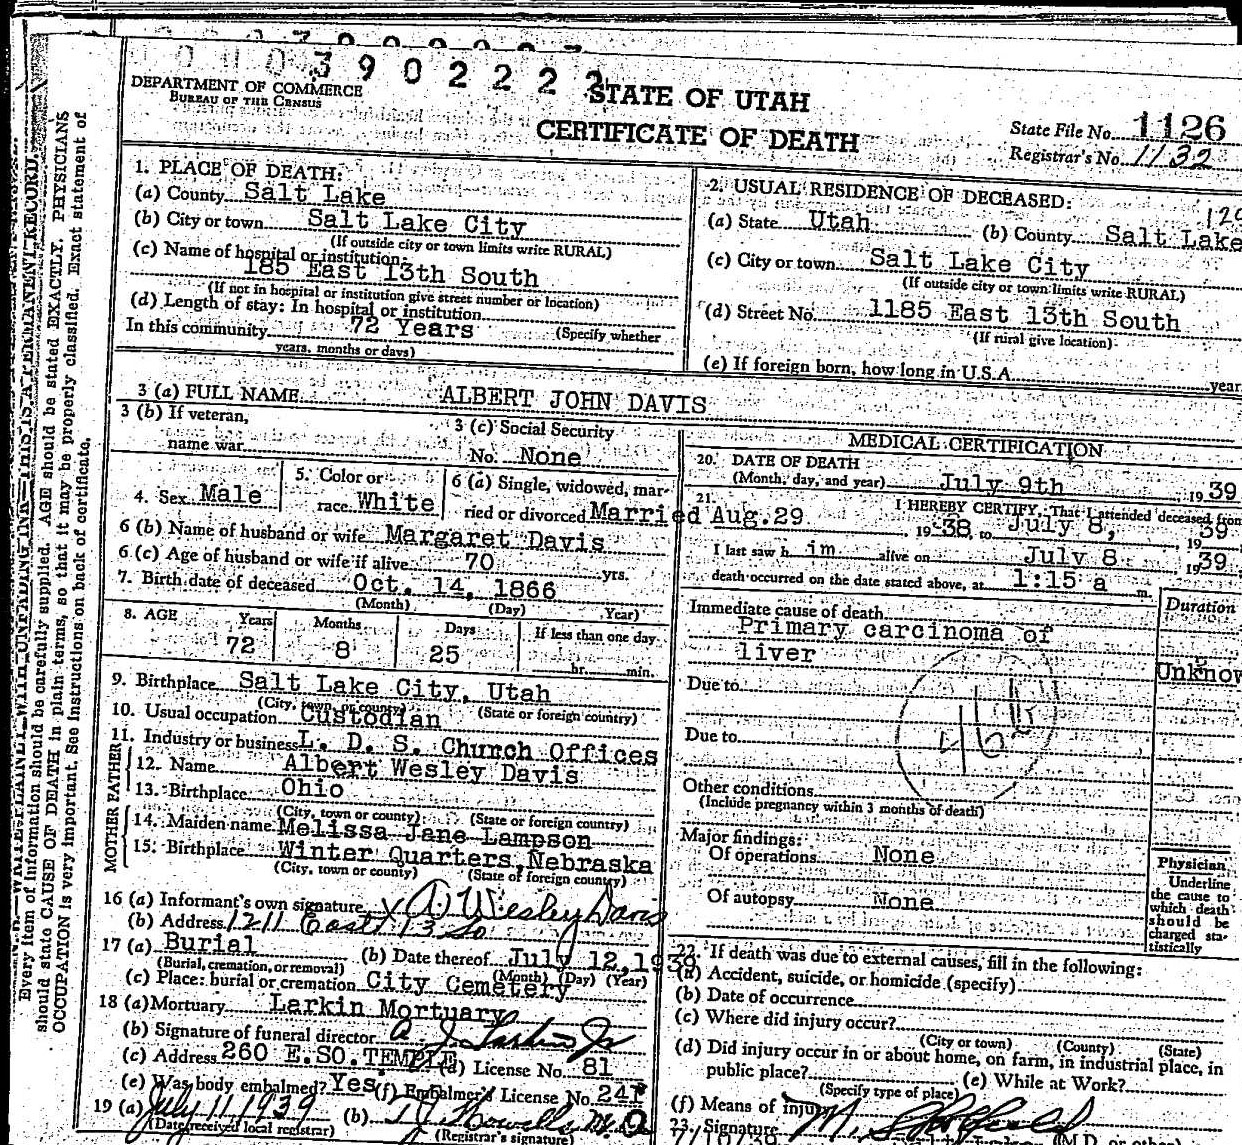 3902223
DEPARTMENT OF COMMERCE
BUREAU OF THE CENSUS
STATE OF UTAH
CERTIFICATE OF DEATH
State File No. 1126
Registrar's No. 1132
1. PLACE OF DEATH:
(a) County Salt Lake
(b) City or town Salt Lake City
(If outside city or town limits write RURAL)
(c) Name of hospital or institution:
185 East 13th South
(If not in hospital or institution give street number or location)
(d) Length of stay: In hospital or institution
In this community 72 Years (Specify whether
years, months or days)
2. USUAL RESIDENCE OF DECEASED:
(a) State Utah (b) County Salt Lake
(c) City or town Salt Lake City
(If outside city or town limits write RURAL)
(d) Street No. 1185 East 13th South
(If rural give location)
(e) If foreign born, how long in U.S.A. year
3 (a) FULL NAME ALBERT JOHN DAVIS
3 (b) If veteran,
name war
3 (c) Social Security
No. None
4. Sex Male
5. Color or
race White
6 (a) Single, widowed, mar-
ried or divorced Married
6 (b) Name of husband or wife Margaret Davis
6 (c) Age of husband or wife if alive 70 yrs.
7. Birth date of deceased Oct. 14, 1866
(Month) (Day) Year)
8. AGE Years Months Days If less than one day
72 8 25 hr. min.
9. Birthplace Salt Lake City, Utah
(City, town, or county) (State or foreign country)
10. Usual occupation Custodian
11. Industry or business L. D. S. Church Offices
FATHER
12. Name Albert Wesley Davis
13. Birthplace Ohio
(City, town or county) (State or foreign country)
MOTHER
14. Maiden name Melissa Jane Lampson
15. Birthplace Winter Quarters, Nebraska
(City, town or county) (State of foreign country)
16 (a) Informant's own signature x A Wesley Davis
(b) Address 1211 East 13 So
17 (a) Burial (b) Date thereof July 12, 1939
(Burial, cremation, or removal) (Month) (Day) (Year)
(c) Place: burial or cremation City Cemetery
18 (a) Mortuary Larkin Mortuary
(b) Signature of funeral director A J Larkin Jr
(c) Address 260 E.SO.TEMPLE (d) License No. 81
(e) Was body embalmed? Yes (f) Embalmer's License No. 241
19 (a) July 11 1939 (b) M.D.
(Date received local registrar) (Registrar's signature)
MEDICAL CERTIFICATION
20. DATE OF DEATH
(Month, day, and year) July 9th, 1939
21. I HEREBY CERTIFY, That I attended deceased from
Aug. 29 1938, to July 8, 1939
I last saw him alive on July 8 1939
death occurred on the date stated above, at 1:15 a m.
Immediate cause of death
Primary carcinoma of
liver
Duration
Unknow
Due to
Due to
Other conditions
(Include pregnancy within 3 months of death)
Major findings:
Of operations None
Of autopsy None
Physician
Underline
the cause to
which death
should be
charged sta-
tistically
22. If death was due to external causes, fill in the following:
(a) Accident, suicide, or homicide (specify)
(b) Date of occurrence
(c) Where did injury occur?
(City or town) (County) (State)
(d) Did injury occur in or about home, on farm, in industrial place, in
public place? (e) While at Work?
(Specify type of place)
(f) Means of injury
23. Signature
7/10/39 (M.D. or other)
N. B.—WRITE PLAINLY WITH UNFADING INK—THIS IS A PERMANENT RECORD.
Every item of information should be carefully supplied. AGE should be stated EXACTLY. PHYSICIANS
should state CAUSE OF DEATH in plain terms, so that it may be properly classified. Exact statement of
OCCUPATION is very important. See instructions on back of certificate.